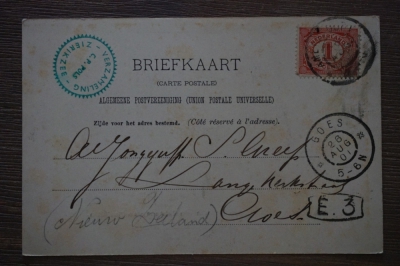 VERZAMELING
ZIERIKZEE
1
BRIEFKAART
(CARTE POSTALE)
ALGEMEENE POSTVEREENIGING (UNION POSTALE UNIVERSELLE)
Zijde voor het adres bestemd. (Côté réservé à l'adresse.)
GOES
28
AUG
5-6N
S.
Lange Kerkstraat
Goes.
(Nieuw Zeeland)
E.3